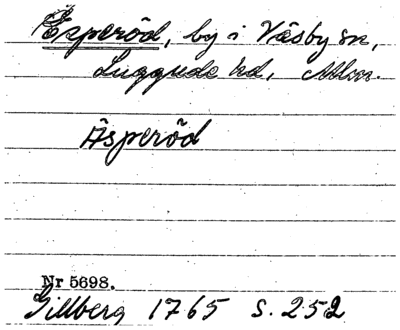 Esperöd, by i Väsby sn,
Luggude hd, Mlm.
Äsperöd
Nr 5698.
Gillberg 1765 s. 252